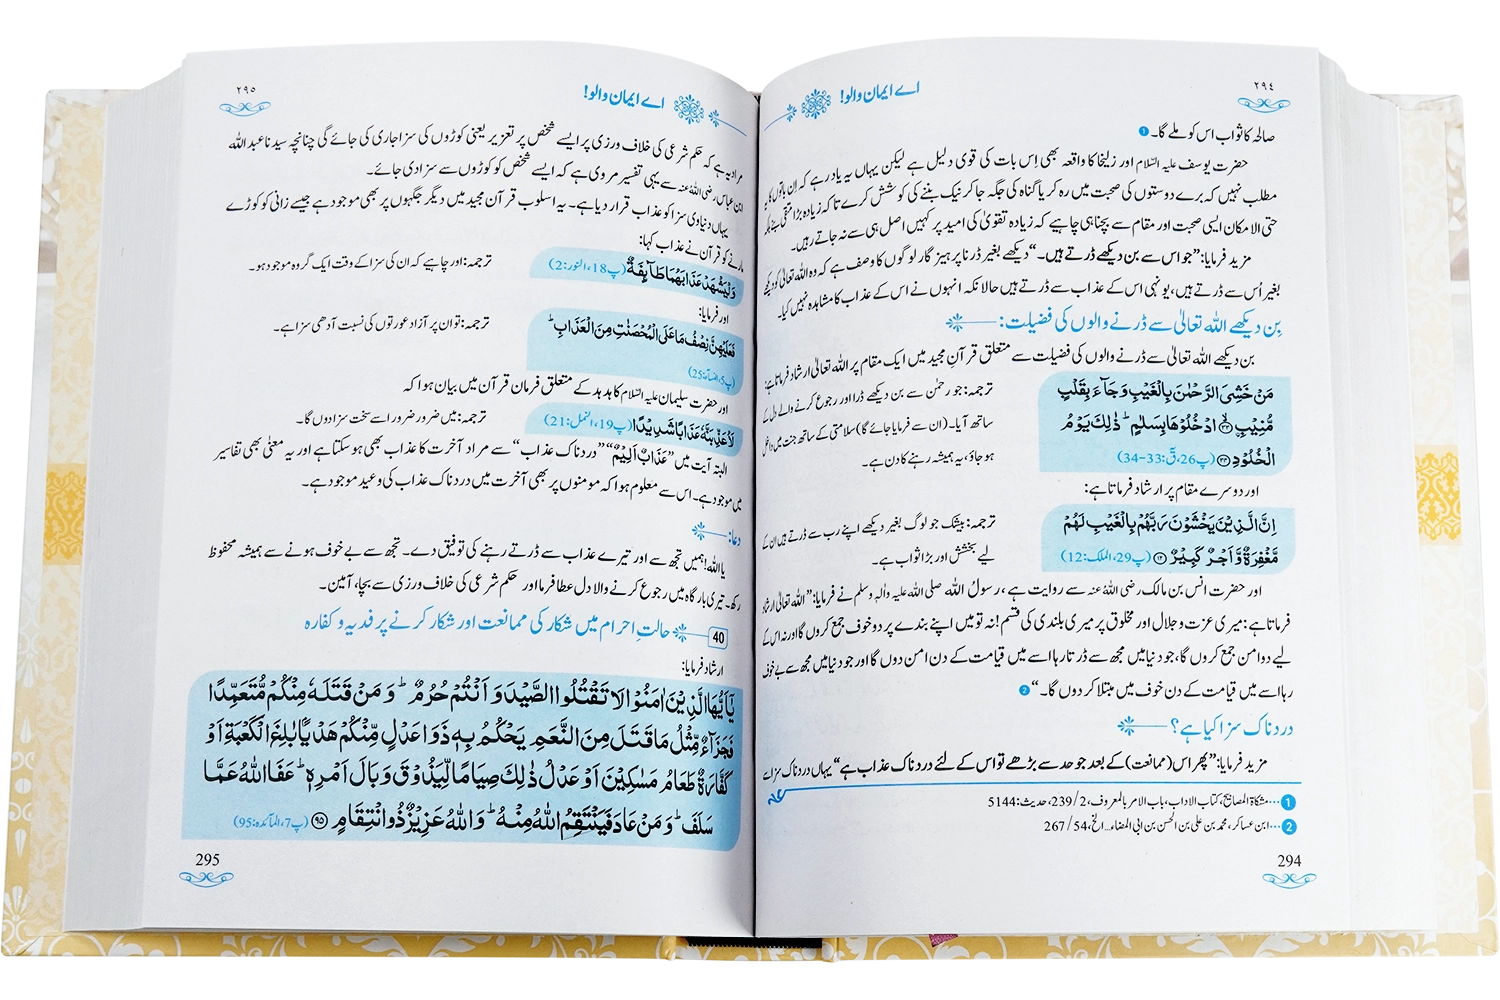 ٢٩٤
اے ایمان والو!
صالحہ کا ثواب اس کو ملے گا۔ 1
حضرت یوسف علیہ السّلام اور زلیخا کا واقعہ بھی اِس بات کی قوی دلیل ہے لیکن یہاں یہ یاد رہے کہ اِن باتوں کا یہ
مطلب نہیں کہ برے دوستوں کی صحبت میں رہ کر یا گناہ کی جگہ جا کر نیک بننے کی کوشش کرے تاکہ زیادہ بڑا متقی بنے بلکہ
حتی الامکان ایسی صحبت اور مقام سے بچنا ہی چاہیے کہ زیادہ تقویٰ کی امید پر کہیں اصل ہی سے نہ جاتے رہیں۔
مزید فرمایا: ”جو اس سے بن دیکھے ڈرتے ہیں۔“ دیکھے بغیر ڈرنا پرہیز گار لوگوں کا وصف ہے کہ وہ اللہ تعالیٰ کو دیکھے
بغیر اُس سے ڈرتے ہیں، یونہی اس کے عذاب سے ڈرتے ہیں حالانکہ انہوں نے اس کے عذاب کا مشاہدہ نہیں کیا۔
بِن دیکھے اللہ تعالیٰ سے ڈرنے والوں کی فضیلت:
بن دیکھے اللہ تعالیٰ سے ڈرنے والوں کی فضیلت سے متعلق قرآنِ مجید میں ایک مقام پر اللہ تعالیٰ ارشاد فرماتا ہے:
مَنْ خَشِیَ الرَّحْمٰنَ بِالْغَیْبِ وَ جَآءَ بِقَلْبٍ
مُّنِیْبِۙ﴿۳۳﴾ ادْخُلُوْهَا بِسَلٰمٍؕ ذٰلِكَ یَوْمُ
الْخُلُوْدِ﴿۳۴﴾ (پ26، قٓ: 33-34)
ترجمہ: جو رحمٰن سے بن دیکھے ڈرا اور رجوع کرنے والے دل کے
ساتھ آیا۔ (ان سے فرمایا جائے گا) سلامتی کے ساتھ جنت میں داخل
ہو جاؤ، یہ ہمیشہ رہنے کا دن ہے۔
اور دوسرے مقام پر ارشاد فرماتا ہے:
اِنَّ الَّذِیْنَ یَخْشَوْنَ رَبَّهُمْ بِالْغَیْبِ لَهُمْ
مَّغْفِرَةٌ وَّ اَجْرٌ كَبِیْرٌ﴿۱۲﴾ (پ29، الملک: 12)
ترجمہ: بیشک جو لوگ بغیر دیکھے اپنے رب سے ڈرتے ہیں ان کے
لیے بخشش اور بڑا ثواب ہے۔
اور حضرت انس بن مالک رضی اللہ عنہ سے روایت ہے، رسولُ اللہ صلی اللہ علیہ واٰلہٖ وسلم نے فرمایا: ”اللہ تعالیٰ ارشاد
فرماتا ہے: میری عزت و جلال اور مخلوق پر میری بلندی کی قسم! نہ تو میں اپنے بندے پر دو خوف جمع کروں گا اور نہ اس کے
لیے دو امن جمع کروں گا، جو دنیا میں مجھ سے ڈرتا رہا اسے میں قیامت کے دن امن دوں گا اور جو دنیا میں مجھ سے بے خوف
رہا اسے میں قیامت کے دن خوف میں مبتلا کر دوں گا۔“ 2
دردناک سزا کیا ہے؟
مزید فرمایا: ”پھر اس (ممانعت) کے بعد جو حد سے بڑھے تو اس کے لئے دردناک عذاب ہے“ یہاں دردناک سزا سے
1 ...مشکاة المصابیح، کتاب الاداب، باب الامر بالمعروف، 2/239، حدیث: 5144
2 ...ابن عساکر، محمد بن علی بن الحسن بن ابی المضاء... الخ، 54/267
294
٢٩٥
اے ایمان والو!
مراد یہ ہے کہ حکم شرعی کی خلاف ورزی پر ایسے شخص پر تعزیر یعنی کوڑوں کی سزا جاری کی جائے گی چنانچہ سیدنا عبد اللہ
ابن عباس رضی اللہ عنہ سے یہی تفسیر مروی ہے کہ ایسے شخص کو کوڑوں سے سزا دی جائے۔
یہاں دنیاوی سزا کو عذاب قرار دیا ہے۔ یہ اسلوب قرآن مجید میں دیگر جگہوں پر بھی موجود ہے جیسے زانی کو کوڑے
مارنے کو قرآن نے عذاب کہا:
وَ لْیَشْهَدْ عَذَابَهُمَا طَآىٕفَةٌ (پ18، النور: 2)
ترجمہ: اور چاہیے کہ ان کی سزا کے وقت ایک گروہ موجود ہو۔
اور فرمایا:
فَعَلَیْهِنَّ نِصْفُ مَا عَلَى الْمُحْصَنٰتِ مِنَ الْعَذَابِؕ
(پ5، النسآء: 25)
ترجمہ: تو ان پر آزاد عورتوں کی نسبت آدھی سزا ہے۔
اور حضرت سلیمان علیہ السّلام کا ہدہد کے متعلق فرمان قرآن میں بیان ہوا کہ
لَاُعَذِّبَنَّهٗ عَذَابًا شَدِیْدًا (پ19، النمل: 21)
ترجمہ: میں ضرور ضرور اسے سخت سزا دوں گا۔
البتہ آیت میں ”عَذَابٌ اَلِیْمٌ“ ”دردناک عذاب“ سے مراد آخرت کا عذاب بھی ہو سکتا ہے اور یہ معنٰی بھی تفاسیر
میں موجود ہے۔ اس سے معلوم ہوا کہ مومنوں پر بھی آخرت میں دردناک عذاب کی وعید موجود ہے۔
دعا:
یا اللہ! ہمیں تجھ سے اور تیرے عذاب سے ڈرتے رہنے کی توفیق دے۔ تجھ سے بے خوف ہونے سے ہمیشہ محفوظ
رکھ۔ تیری بارگاہ میں رجوع کرنے والا دل عطا فرما اور حکم شرعی کی خلاف ورزی سے بچا، آمین۔
40 حالتِ احرام میں شکار کی ممانعت اور شکار کرنے پر فدیہ و کفارہ
ارشاد فرمایا:
یٰۤاَیُّهَا الَّذِیْنَ اٰمَنُوْا لَا تَقْتُلُوا الصَّیْدَ وَ اَنْتُمْ حُرُمٌؕ وَ مَنْ قَتَلَهٗ مِنْكُمْ مُّتَعَمِّدًا
فَجَزَآءٌ مِّثْلُ مَا قَتَلَ مِنَ النَّعَمِ یَحْكُمُ بِهٖ ذَوَا عَدْلٍ مِّنْكُمْ هَدْیًۢا بٰلِغَ الْكَعْبَةِ اَوْ
كَفَّارَةٌ طَعَامُ مَسٰكِیْنَ اَوْ عَدْلُ ذٰلِكَ صِیَامًا لِّیَذُوْقَ وَ بَالَ اَمْرِهٖؕ عَفَا اللّٰهُ عَمَّا
سَلَفَؕ وَ مَنْ عَادَ فَیَنْتَقِمُ اللّٰهُ مِنْهُؕ وَ اللّٰهُ عَزِیْزٌ ذُو انْتِقَامٍ﴿۹۵﴾ (پ7، المآئدہ: 95)
295